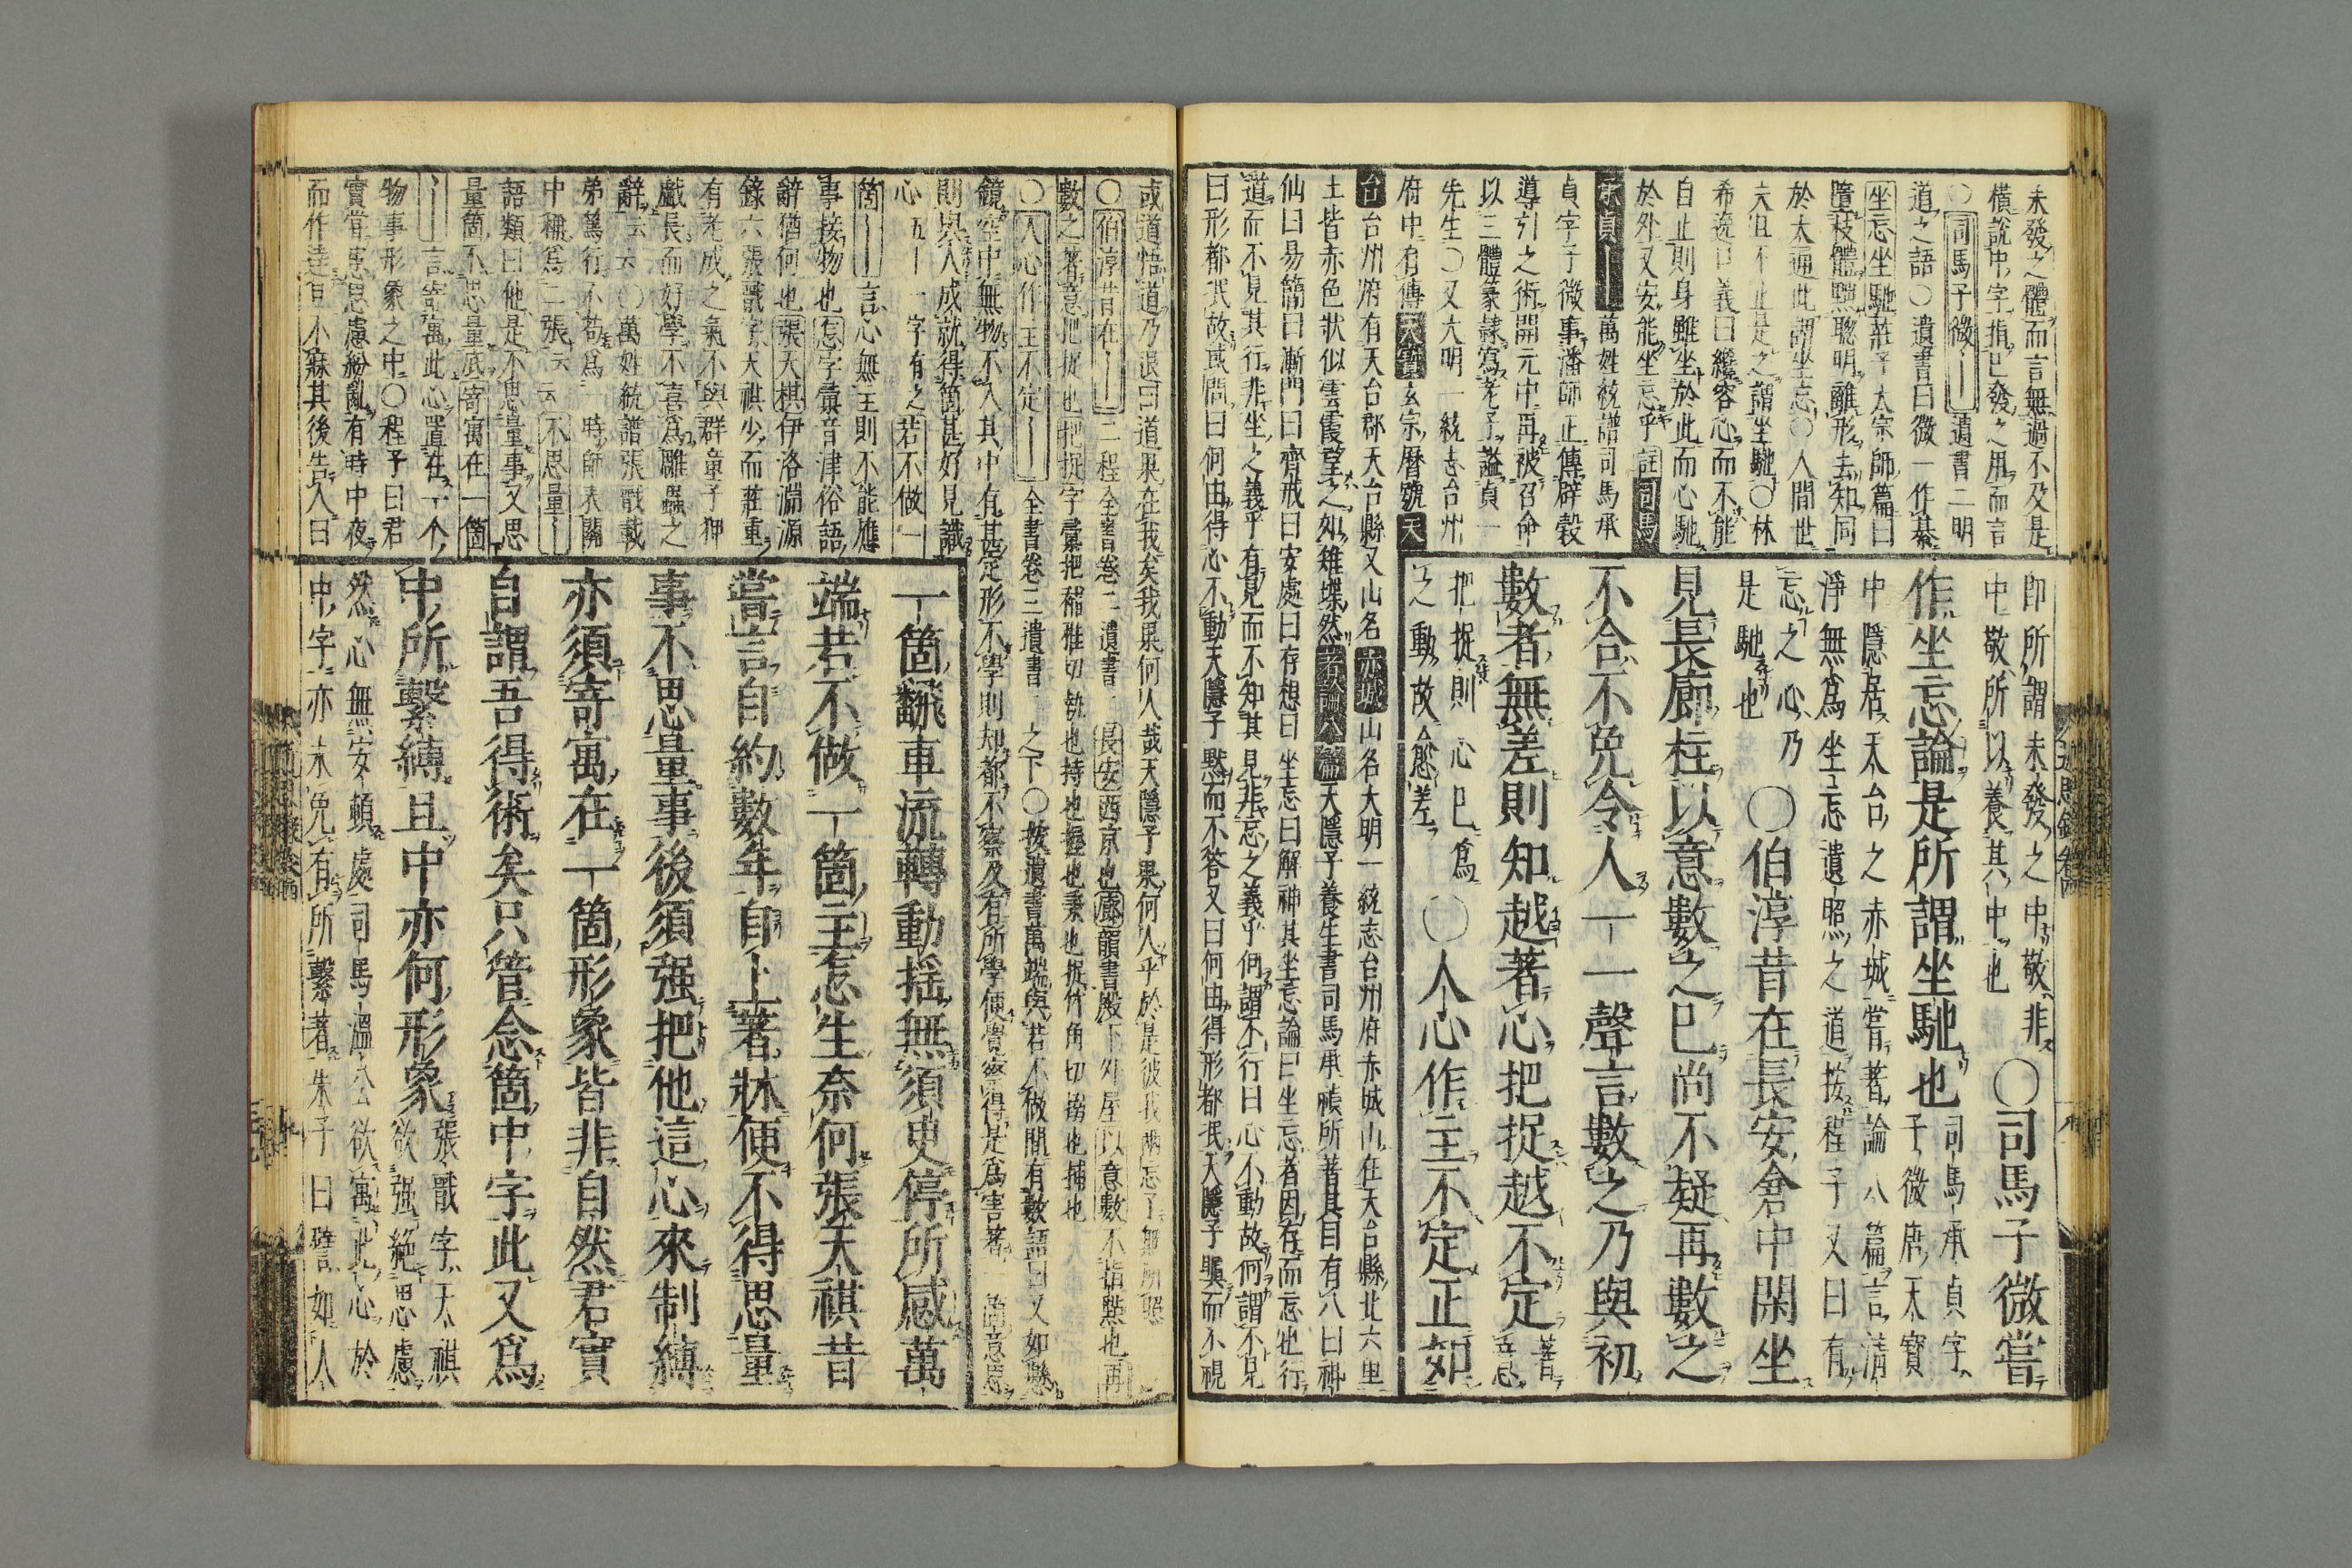 未發之體而言無過不及是
橫說中字指已發之用而言
○司馬子微｜遺書二明
道之語○遺書曰微一作綦
坐忘坐馳莊子大宗師篇曰
墮枝體黜聰明離形去知同
於大通此謂坐忘○人間世
夫且不止是之謂坐馳○林
希逸口義曰纔容心而不能
自止則身雖坐於此而心馳
於外又安能坐忘乎註司馬
承貞｜萬姓統譜司馬承
貞字子微事潘師正傳辟穀
導引之術開元中再被召命
以三體篆隷寫老子謚貞一
先生○又大明一統志台州
府中有傳天寶玄宗曆號天
台台州府有天台郡天台縣又山名赤城山名大明一統志台州府赤城山在天台縣北六里
土皆赤色狀似雲霞望之如雉堞然著論八篇天隱子養生書司馬承禎所著其目有八曰神
仙曰易簡曰漸門曰齊戒曰安處曰存想曰坐忘曰解神其坐忘論曰坐忘者因存而忘也行
道而不見其行非坐之義乎有見而不知其見非忘之義乎何謂不行曰心不動故何謂不見
曰形都泯故或問曰何由得心不動天隱子默而不答又曰何由得形都泯天隱子瞑而不視
即所謂未發之中敬非
中敬所以養其中也
○司馬子微嘗
作坐忘論是所謂坐馳也
司馬承貞字
子微唐天寶
中隱居天台之赤城嘗著論八篇言清
淨無爲坐忘遺照之道按程子又曰有
忘之心乃
是馳也
○伯淳昔在長安倉中閑坐
見長廊柱以意數之已尚不疑再數之
不合不免令人一一聲言數之乃與初
數者無差則知越著心把捉越不定
著意
把捉則心已爲
之動故愈差
○人心作主不定正如
或道悟道乃退曰道果在我矣我果何人哉天隱子果何人乎於是彼我兩忘了無所照
○伯淳昔在｜二程全書卷二遺書｜長安西京也廊韻書殿下外屋以意數不指點也再
數之著意把捉也把捉字彙把補雅切執也持也握也秉也捉竹角切搦也捕也
○人心作主不定｜全書卷三遺書二之下○按遺書萬端與若不做間有數語曰又如懸
鏡空中無物不入其中有甚定形不學則却都不察及有所學便覺察得是爲害著一箇意思
則與人成就得箇甚好見識
心五｜一字有之若不做一
箇｜言心無主則不能應
事接物也怎字彙音津俗語
辭猶何也張天棋伊洛淵源
錄六張戩字天祺少而莊重
有老成之氣不與群童子狎
戲長而好學不喜爲雕蟲之
辭云云○萬姓統譜張戩載
弟篤行不苟爲一時師表關
中稱爲二張云云不思量｜
語類曰他是不思量事又思
量箇不思量底寄寓在一箇
｜言寄寓此心置在一个
物事形象之中○程子曰君
實嘗患思慮紛亂有時中夜
而作達旦不寐其後告人曰
一箇飜車流轉動搖無須臾停所感萬
端若不做一箇主怎生奈何張天祺昔
嘗言自約數年自上著牀便不得思量
事不思量事後須强把他這心來制縛
亦須寄寓在一箇形象皆非自然君實
自謂吾得術矣只管念箇中字此又爲
中所繫縛且中亦何形象
張戩字天祺
欲强絶思慮
然心無安頓處司馬溫公欲寓此心於
中字亦未免有所繫著朱子曰譬如人